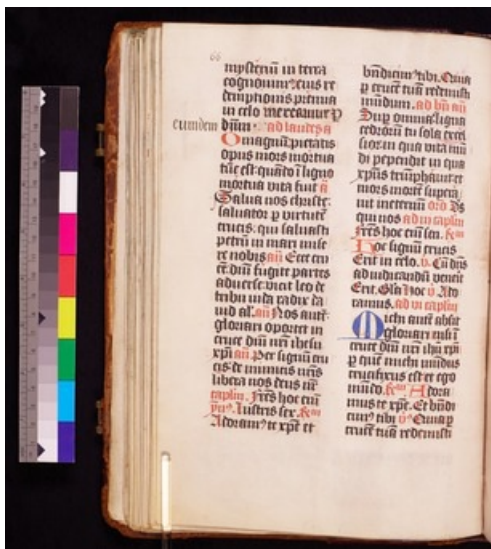 66
mysteriū in terra
cognouim⁹ eius re
demptionis premia
in celo mereamur p
eumdem dn̄m · ad laudes a
O magnū pietatis
opus mors mortua
tūc est quādo ī ligno
mortua vita fuit a͞n
Salua nos christe
saluator p virtutē
crucis. qui saluasti
petrū in mari mise
re nobis an̄ Ecce cru
cē dn̄i fugite partes
aduerse vicit leo de
tribu iuda radix da
uid al'. an̄ Nos autē
gloriari oportet in
cruce dn̄i nr̄i ihesu
xp̄i an̄. Per signū cru
cis de inimicis nr̄is
libera nos deus nr̄
capl'm. Fr̄es hoc em̄
ymⁿ⁹. Lustris sex.
Adoram⁹ te xp̄e et
bn̄dicim⁹ tibi. Quia
p crucē tuā redemisti
mundum. ad bn̄ an̄
Sup omnia ligna
cedrorū tu sola excel
sior in qua vita mū
di pependit in qua
xp̄us triumphauit et
mors mortē supera
uit in eternū oro Ds
qui nos ad
Fr̄es hoc em̄ sen.
Hoc signū crucis
Erit in celo. v. Cū dn̄s
ad iudicandū venerit
Erit. Gl'a Hoc v Ado
ramus. ad vi capl'm
Michi autē absit
gloriari nisi ī
cruce dn̄i nr̄i ihū xp̄i
p quē michi mūdus
crucifixus est et ego
mūdo. Adora
mus te xp̄e. Et bn̄di
cim⁹ tibi v⁹ Quia p
crucē tuā redemisti